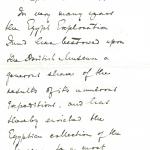 In very many years
the Egypt Exploration
Fund has bestowed upon
the British Museum a
generous share of the
results of its numerous
Expeditions, and has
thereby enriched the
Egyptian collection of the
in a most